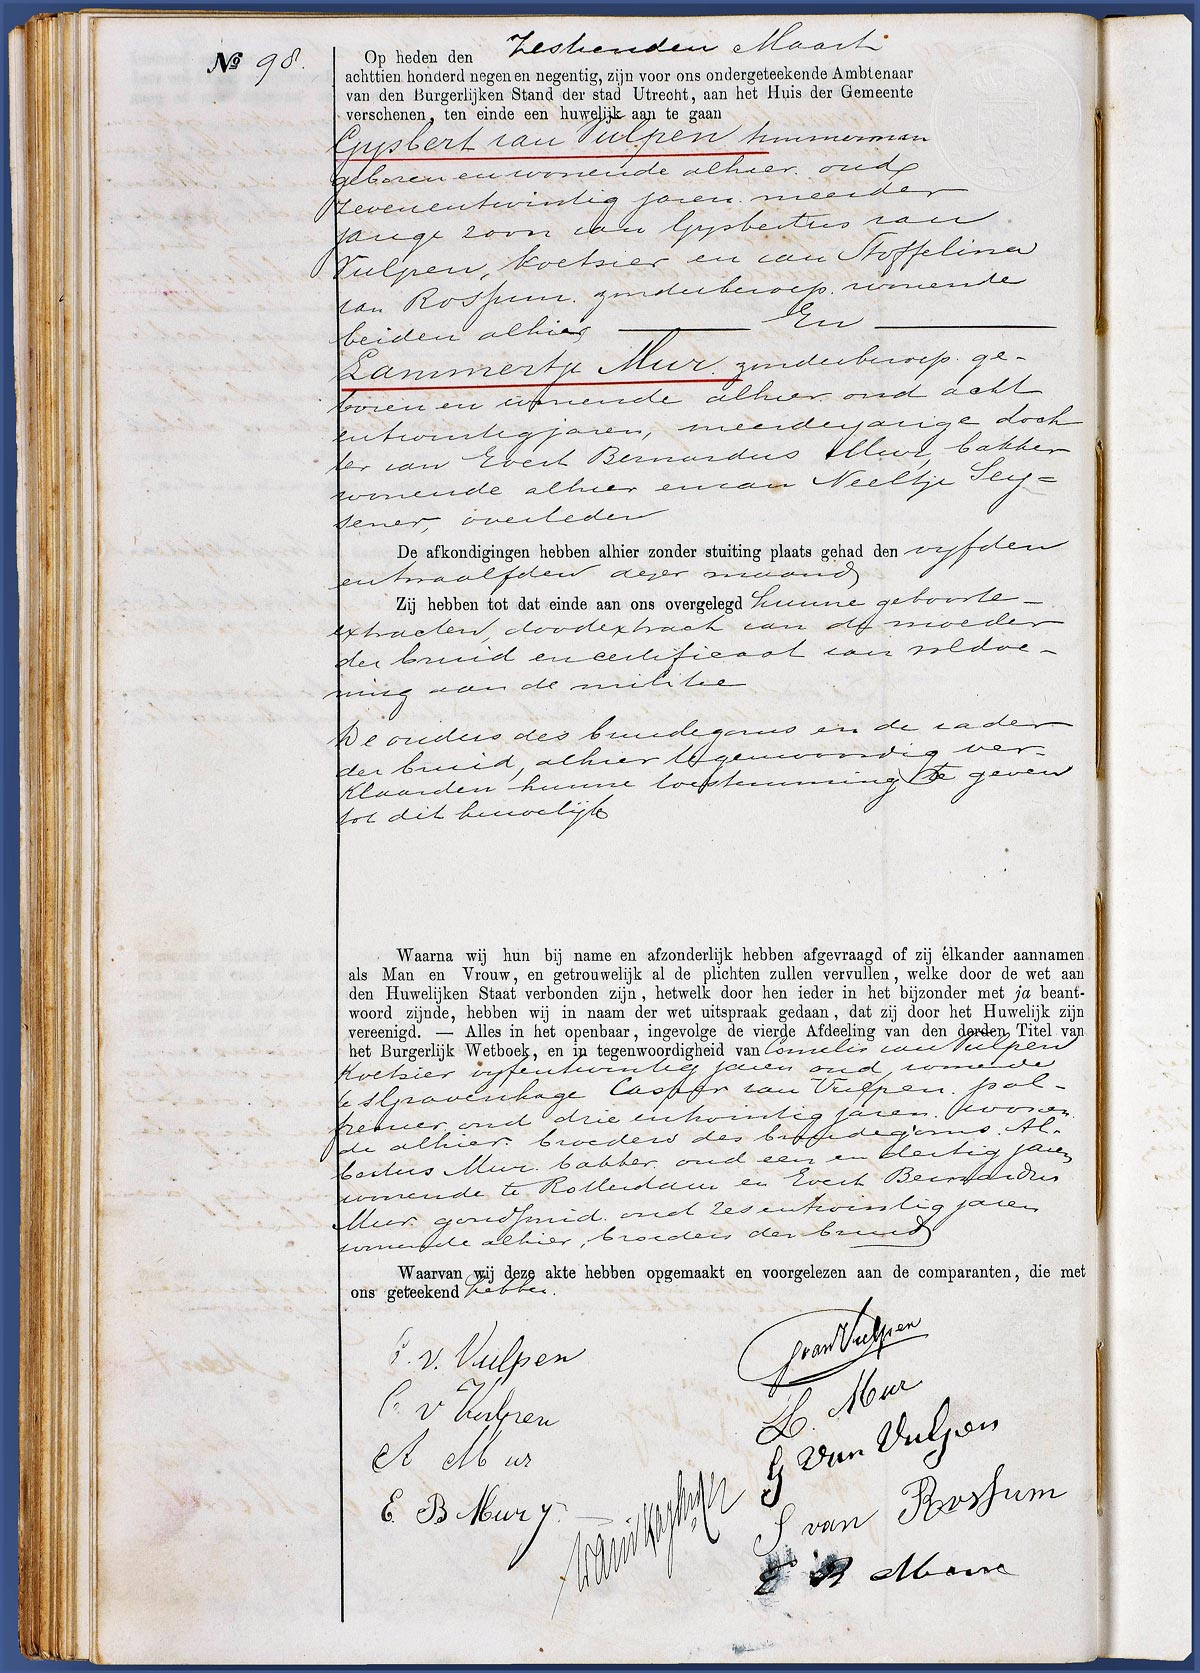 No 98.
Op heden den Zestienden Maart
achttien honderd negen en negentig, zijn voor ons ondergeteekende Ambtenaar
van den Burgerlijken Stand der stad Utrecht, aan het Huis der Gemeente
verschenen, ten einde een huwelijk aan te gaan
Gysbert van Vulpen timmerman
geboren en wonende alhier oud
zevenentwintig jaren meerder
jarige zoon van Gysbertus van
Vulpen, koetsier en van Stoffelina
van Rossum zonder beroep. wonende
beiden alhier En
Lammertje Mur. zonder beroep. ge-
boren en wonende alhier oud acht
entwintig jaren, meerderjarige doch
ter van Evert Bernardus Mur, bakker
wonende alhier en van Neeltje Sey=
sener, overleden
De afkondigingen hebben alhier zonder stuiting plaats gehad den vyfden
en twaalfden dezer maand
Zij hebben tot dat einde aan ons overgelegd hunne geboorte-
extracten, doodextract van de moeder
der bruid en certificaat van voldoe-
ning aan de militie
De ouders des bruidegoms en de vader
der bruid, alhier tegenwoordig ver-
klaarden hunne toestemming te geven
tot dit huwelijk
Waarna wij hun bij name en afzonderlijk hebben afgevraagd of zij élkander aannamen
als Man en Vrouw, en getrouwelijk al de plichten zullen vervullen, welke door de wet aan
den Huwelijken Staat verbonden zijn, hetwelk door hen ieder in het bijzonder met ja beant-
woord zijnde, hebben wij in naam der wet uitspraak gedaan, dat zij door het Huwelijk zijn
vereenigd. — Alles in het openbaar, ingevolge de vierde Afdeeling van den derden Titel van
het Burgerlijk Wetboek, en in tegenwoordigheid van Cornelis van Vulpen
koetsier vyfentwintig jaren oud, wonende
te sGravenhage Casper van Vulpen. pal-
frenier oud drie entwintig jaren. woonen
de alhier. broeders des bruidegoms. Al-
bertus Mur. bakker. oud een en dertig jaren
wonende te Rotterdam en Evert Bernardus
Mur. goudsmid. oud zesentwintig jaren
wonende alhier, broeders der bruid
Waarvan wij deze akte hebben opgemaakt en voorgelezen aan de comparanten, die met
ons geteekend hebben.
G van Vulpen
C. v. Vulpen
L. Mur
C v Vulpen
G van Vulpen
A Mur
S van Rossum
E. B Mur J
E B Mur